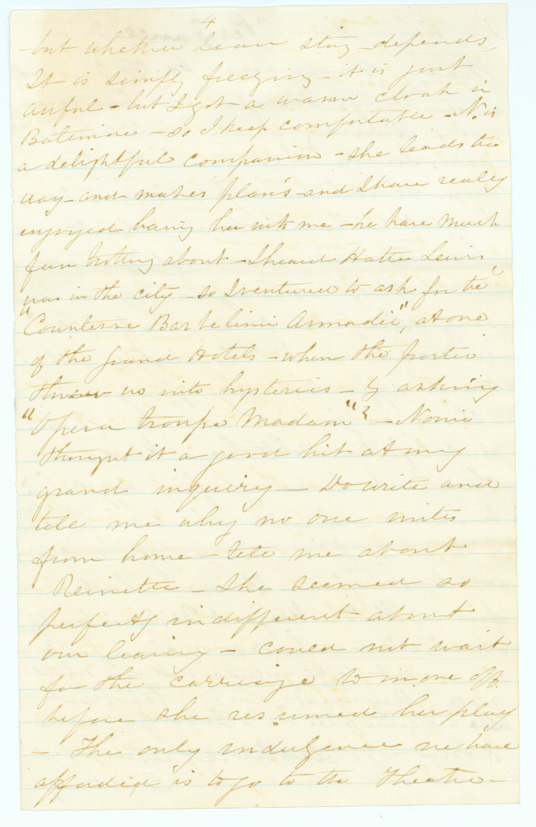 4
- but whether I can stay depends
It is simply freezing - it is just
awful - but I got a warm cloak in
Baltimore - so I keep comfortable - N. is
a delightful companion - she leads the
way - and makes plans - and I have really
enjoyed having her with me - we have much
fun trotting about - I heard Hattie Lewis
was in the city - so I ventured to ask for the
"Countesse Barbelini Armadie", at one
of the Grand Hotels - when the porter
threw us into hysterics - by asking
"Opera troupe Madam"? - Nonie
thought it a good hit at my
grand inquiry - Do write and
tell me why no one writes
from home - tell me about
Reinette - she seemed so
perfectly indifferent about
our leaving - could not wait
for the carriage to move off
before she resumed her play
- The only indulgence we have
afforded is to go to the Theatre -